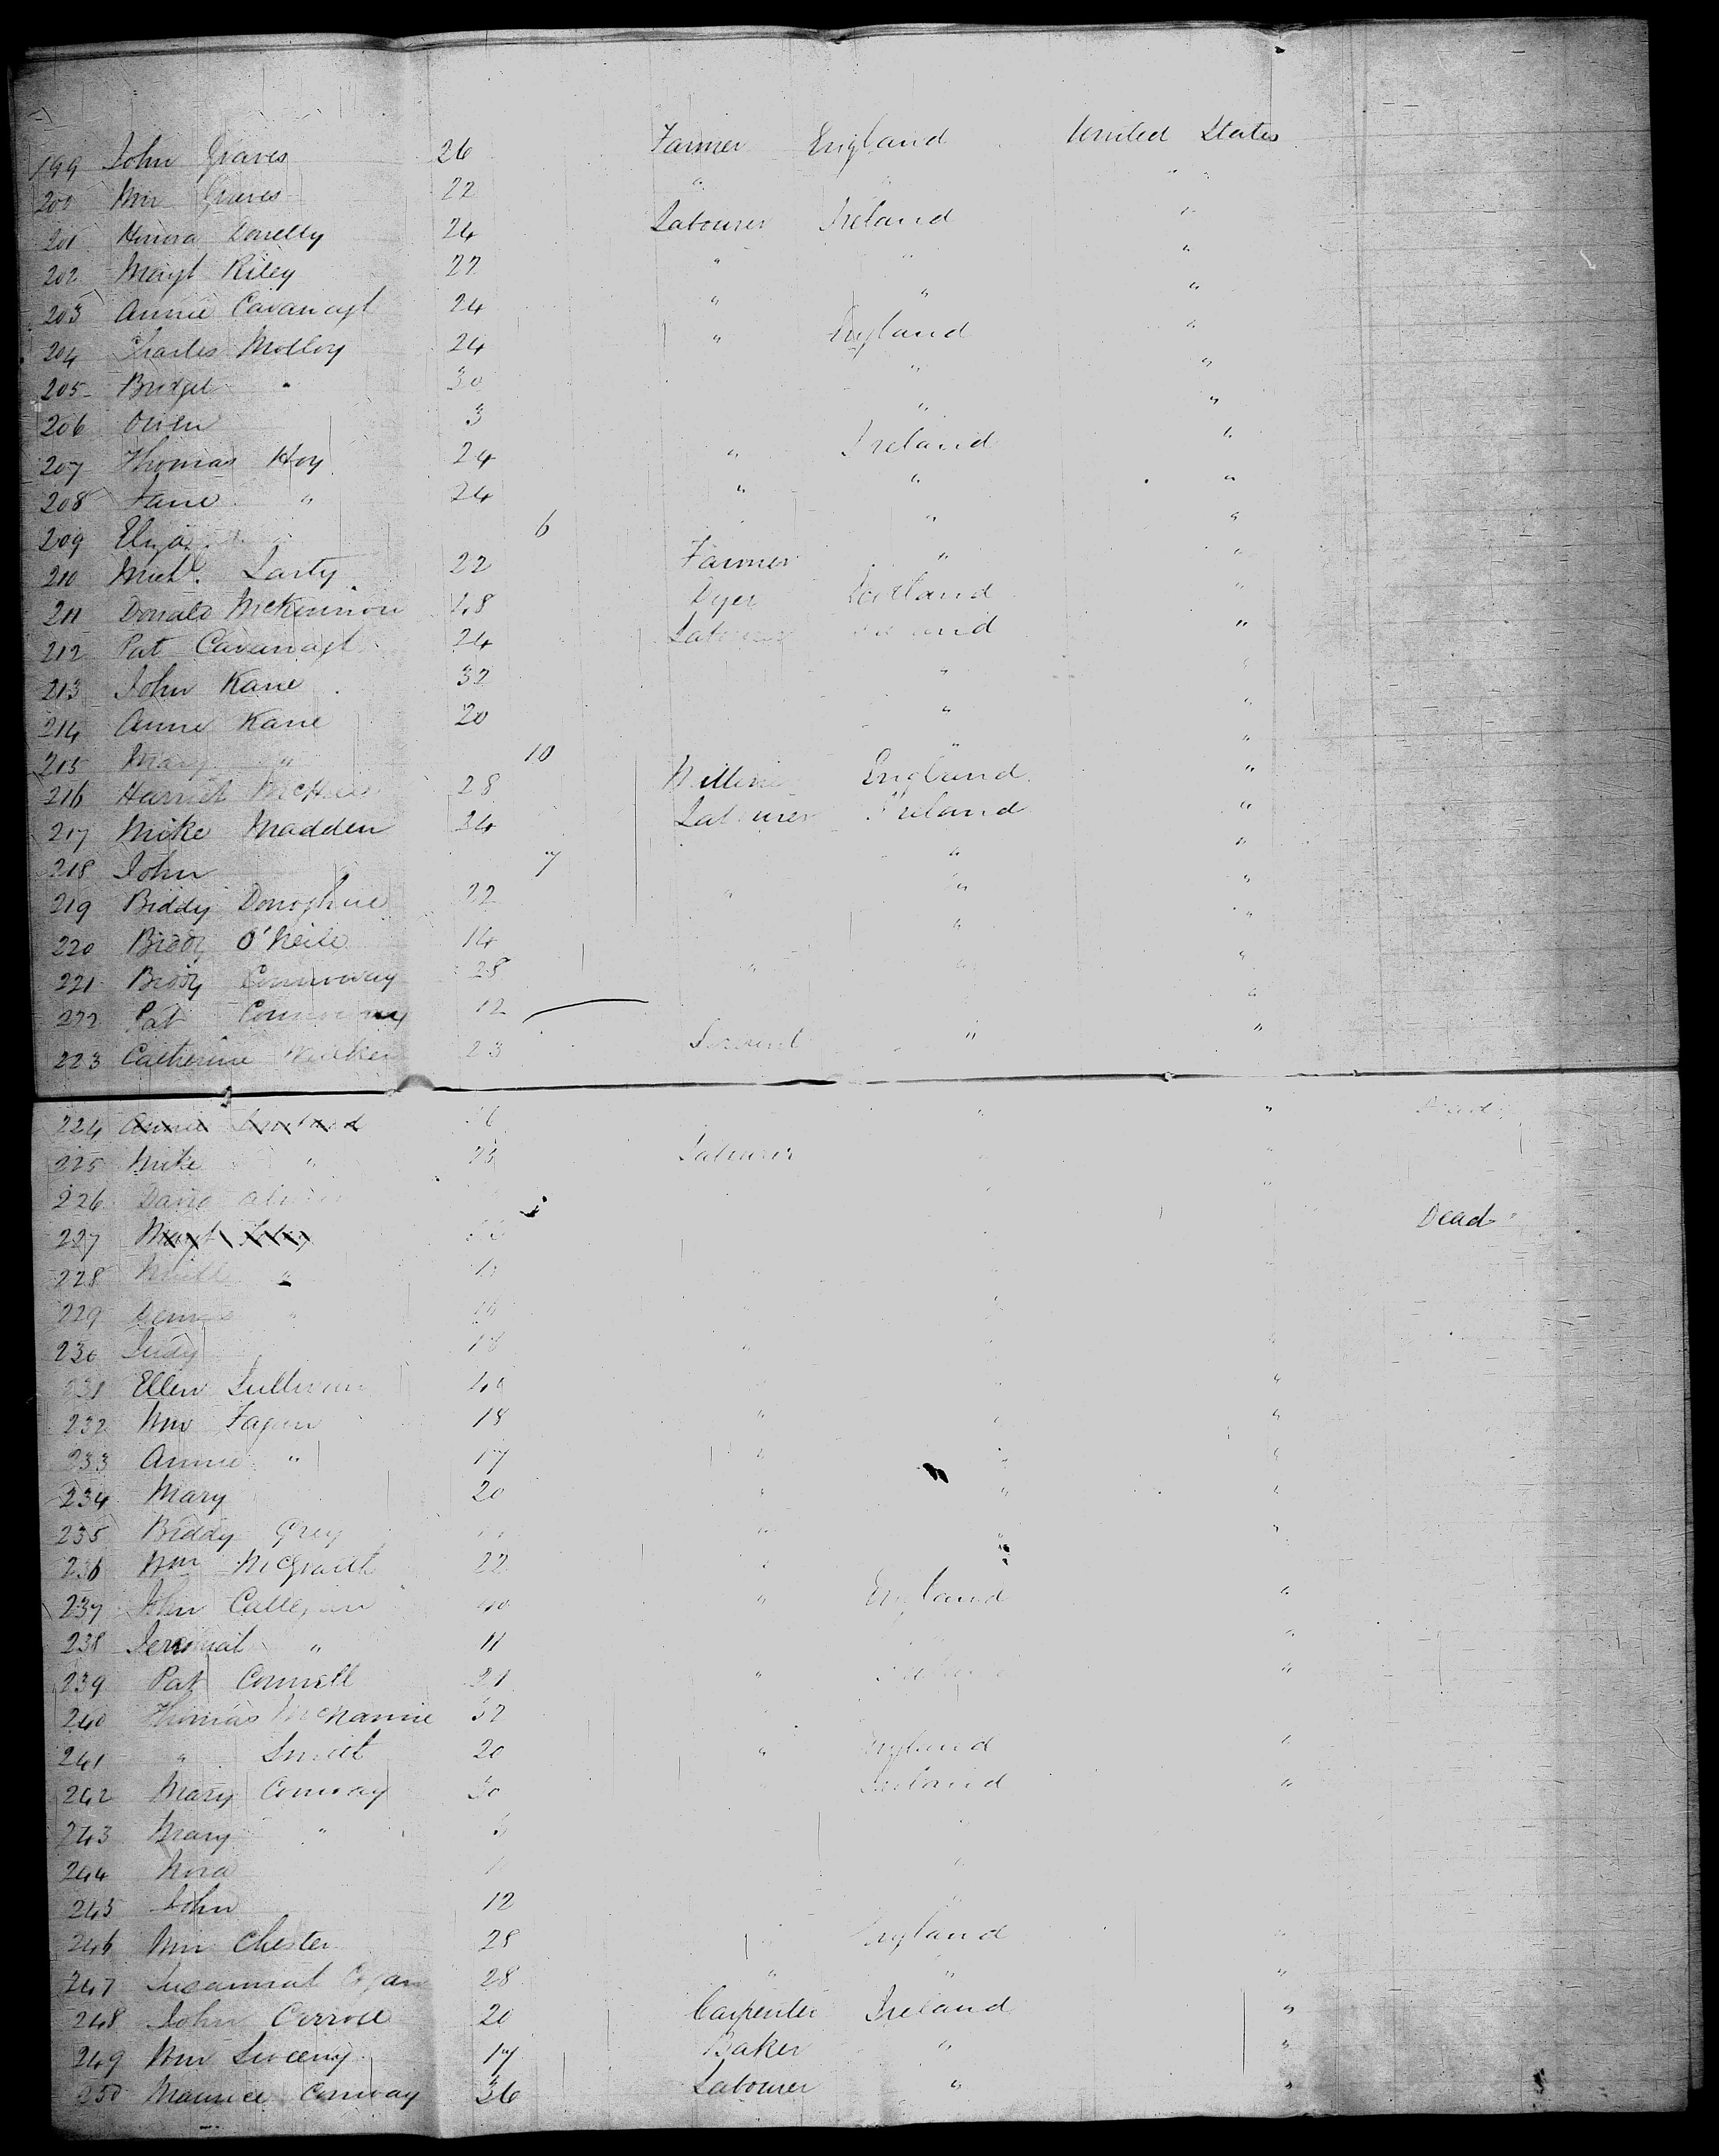 199 John Graves 26 Farmer England United States
200 Wm Graves 22 " " " "
201 Honora Donelly 24 Labourer Ireland "
202 Margt Riley 22 " " "
203 Annie Cavanagh 24 " " "
204 Charles Molloy 24 " England "
205 Bridget " 30 " "
206 Owen 3 " "
207 Thomas Hoy 24 " Ireland "
208 Jane " 24 " " "
209 Eliza " 6 " "
210 Michl. Larty 22 Farmer " "
211 Donald McKinnon 48 Dyer Scotland "
212 Pat Cavanagh 24 Labourer "
213 John Kane 32 " "
214 Anne Kane 20 " "
215 Mary " 10 " "
216 Harriet 28 England "
217 Mike Madden 24 Labourer Ireland "
218 John 7 " "
219 Biddy Donoghue 22 " " "
220 Biddy O'Neile 14 " "
221 Biddy Connoway 28 " " "
222 Pat Connoway 12 "
223 Catherine 23 Servant " "
224 Annie " " Dead
225 Mike " Labourer " "
226 David " "
227 Margt Dead
228 "
229 " " "
230 Judy 18 " "
231 Ellen Sullivan 40 " " "
232 Wm Fagan 18 " " "
233 Annie " 17 " " "
234 Mary 20 " " "
235 Biddy Grey " " "
236 Wm McGrath 22 " "
237 John Callegan 40 " England "
238 Jeremiah " 11 "
239 Pat Connell 21 " "
240 Thomas McNamie 32
241 " Smith 20 " England "
242 Mary Conway 30 Ireland "
243 Mary " "
244 Nora "
245 John 12 "
246 Wm Chester 28 England "
247 Susannah 28 " " "
248 John Carroll 20 Carpenter Ireland "
249 Wm Sweeny 17 Baker " "
250 Maurice Conway 36 Labourer " "